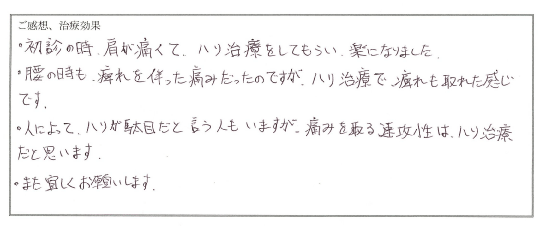 ご感想、治療効果
・初診の時、肩が痛くて、ハリ治療をしてもらい、楽になりました。
・腰の時も、痺れを伴った痛みだったのですが、ハリ治療で、痺れも取れた感じ
です。
・人によって、ハリが駄目だと言う人もいますが、痛みを取る速攻性は、ハリ治療
だと思います。
・また宜しくお願いします。